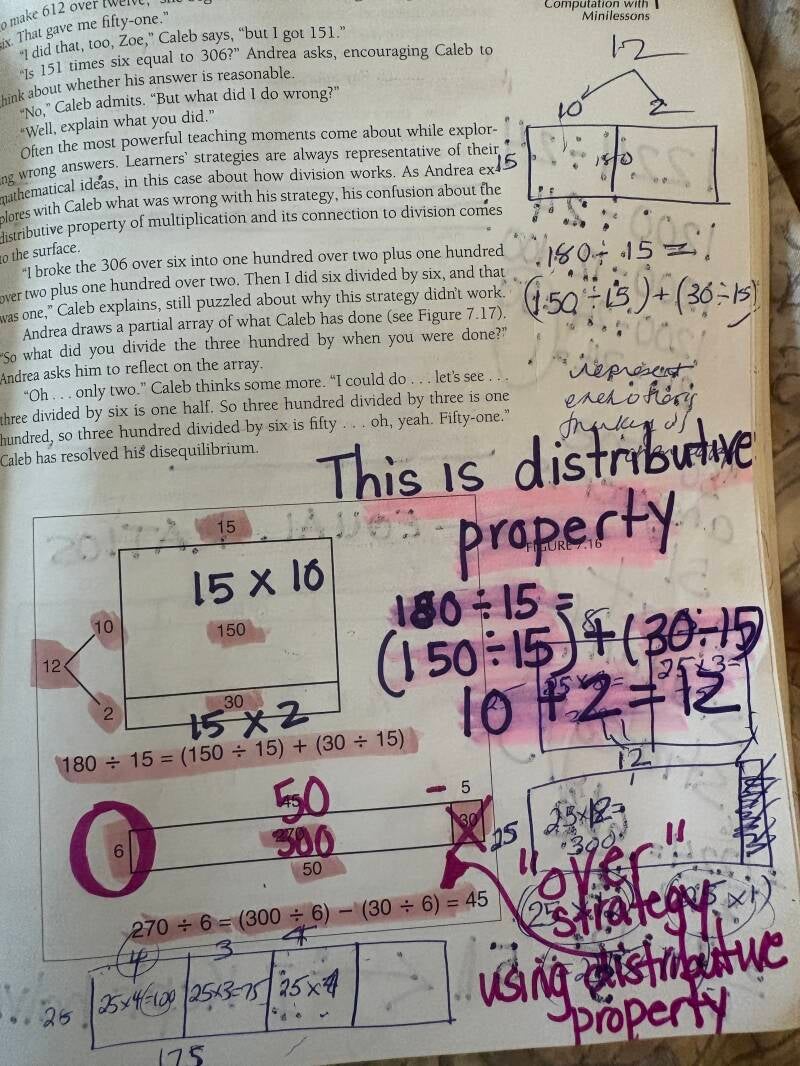 Computation with
Minilessons
to make 612 over twelve,
six. That gave me fifty-one."
"I did that, too, Zoe," Caleb says, "but I got 151."
"Is 151 times six equal to 306?" Andrea asks, encouraging Caleb to
think about whether his answer is reasonable.
"No," Caleb admits. "But what did I do wrong?"
"Well, explain what you did."
Often the most powerful teaching moments come about while explor-
ing wrong answers. Learners' strategies are always representative of their
mathematical ideas, in this case about how division works. As Andrea ex-
plores with Caleb what was wrong with his strategy, his confusion about the
distributive property of multiplication and its connection to division comes
to the surface.
"I broke the 306 over six into one hundred over two plus one hundred
over two plus one hundred over two. Then I did six divided by six, and that
was one," Caleb explains, still puzzled about why this strategy didn't work.
Andrea draws a partial array of what Caleb has done (see Figure 7.17).
"So what did you divide the three hundred by when you were done?"
Andrea asks him to reflect on the array.
"Oh . . . only two." Caleb thinks some more. "I could do . . . let's see . . .
three divided by six is one half. So three hundred divided by three is one
hundred, so three hundred divided by six is fifty . . . oh, yeah. Fifty-one."
Caleb has resolved his disequilibrium.
12
10 2
15
180
180 ÷ 15 =
(150 ÷ 15) + (30 ÷ 15)
represent
This is distributive
property
FIGURE 7.16
180 ÷ 15 =
(150 ÷ 15) + (30 ÷ 15)
10 + 2 = 12
15
15 x 10
10
150
12
2
30
15 x 2
180 ÷ 15 = (150 ÷ 15) + (30 ÷ 15)
50 - 5
45
6
270
300
30
50
270 ÷ 6 = (300 ÷ 6) − (30 ÷ 6) = 45
12
25
25x12=
300
"over"
strategy
using distributive
property
4 3 4
25
25x4=100 25x3=75 25x4
175